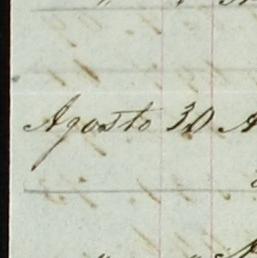 Agosto 30 A